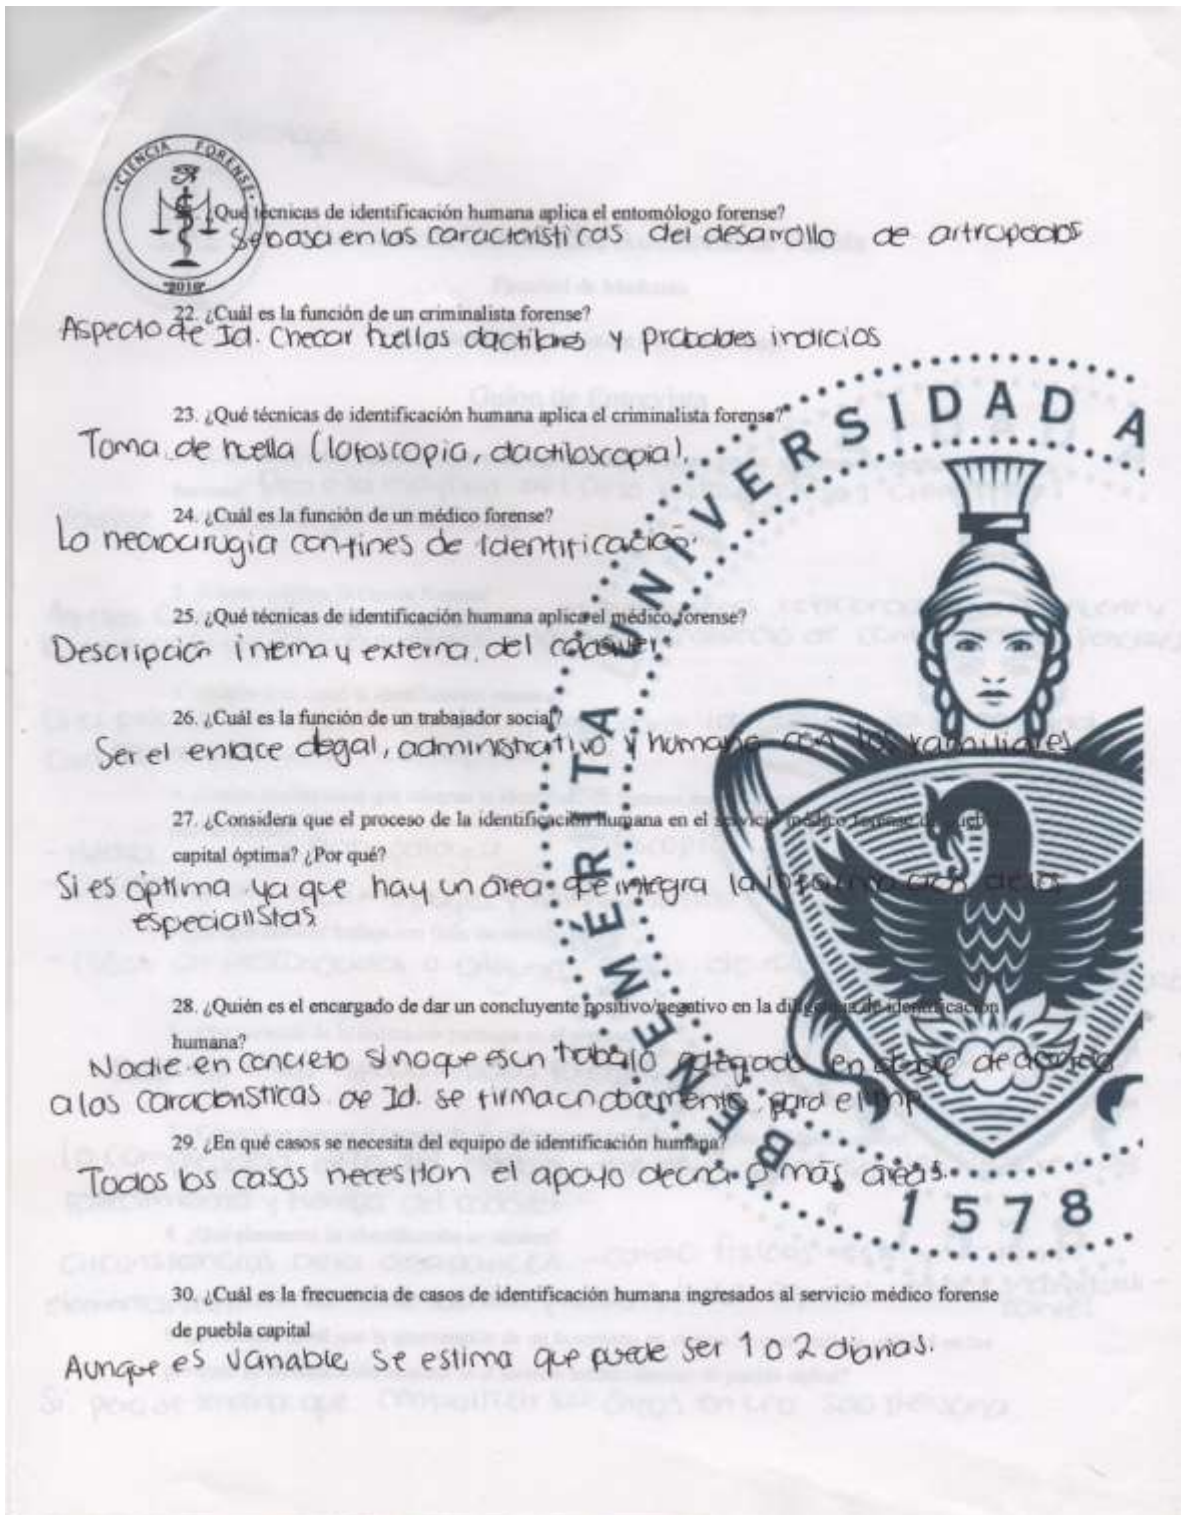 CIENCIA FORENSE
"2010"
¿Qué técnicas de identificación humana aplica el entomólogo forense?
Se basa en las características del desarrollo de artropodos
22. ¿Cuál es la función de un criminalista forense?
Aspecto de Id. Checar huellas dactilares y probables indicios
23. ¿Qué técnicas de identificación humana aplica el criminalista forense?
Toma de huella (lofoscopia, dactiloscopia).
24. ¿Cuál es la función de un médico forense?
La necrocirugia con fines de Identificación.
25. ¿Qué técnicas de identificación humana aplica el médico forense?
Descripción interna y externa del cadáver
26. ¿Cuál es la función de un trabajador social?
Ser el enlace legal, administrativo y humano con los familiares.
27. ¿Considera que el proceso de la identificación humana en el servicio médico forense de puebla
capital óptima? ¿Por qué?
Si es óptima ya que hay un área que integra la información de los
especialistas
28. ¿Quién es el encargado de dar un concluyente positivo/negativo en la diligencia de identificación
humana?
Nadie en concreto sino que es un trabajo en donde de acuerdo
a las características de Id. se firma para el mp
29. ¿En qué casos se necesita del equipo de identificación humana?
Todos los casos necesitan el apoyo de una o más áreas.
30. ¿Cuál es la frecuencia de casos de identificación humana ingresados al servicio médico forense
de puebla capital
Aunque es variable se estima que puede ser 1 o 2 diarias.
BENEMÉRITA UNIVERSIDAD A
1578